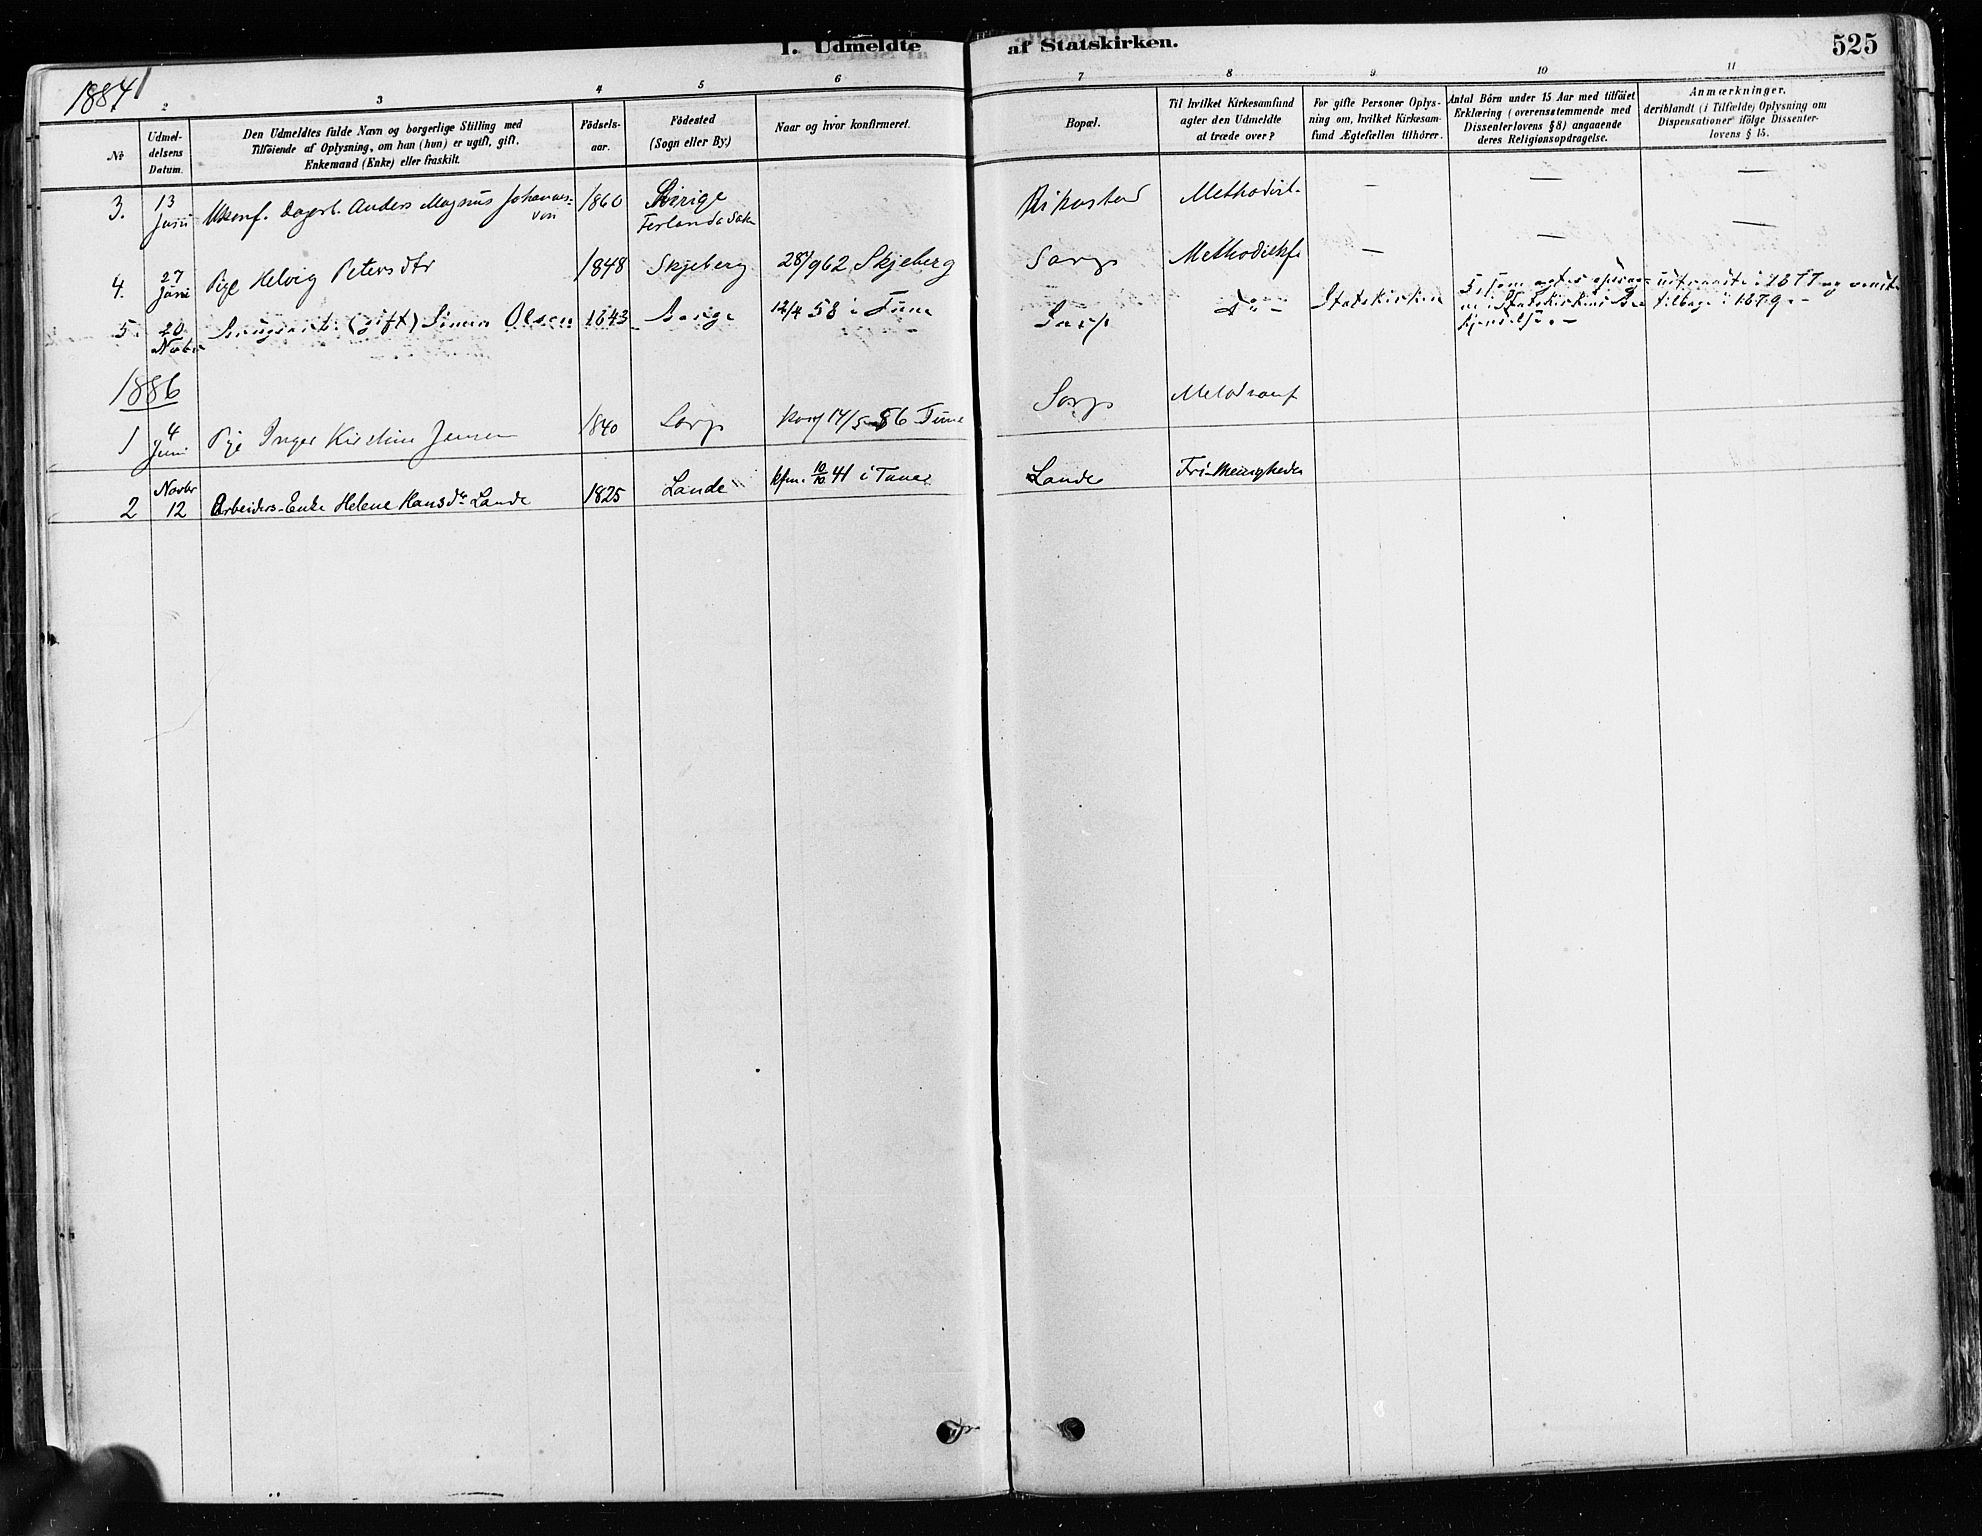 I. Udmeldte af Statskirken. 525
1884
2 3 4 5 6 7 8 9 10 11
№
Udmel-
delsens
Datum.
Den Udmeldtes fulde Navn og borgerlige Stilling med
Tilföiende af Oplysning, om han (hun) er ugift, gift,
Enkemand (Enke) eller fraskilt.
Födsels-
aar.
Födested
(Sogn eller By.)
Naar og hvor konfirmeret.
Bopæl.
Til hvilket Kirkesamfund
agter den Udmeldte
at træde over?
For gifte Personer Oplys-
ning om, hvilket Kirkesam-
fund Ægtefællen tilhörer.
Antal Börn under 15 Aar med tilföiet
Erklæring (overensstemmende med
Dissenterlovens § 8) angaaende
deres Religionsopdragelse.
Anmærkninger,
deriblandt (i Tilfælde) Oplysning om
Dispensationer ifölge Dissenter-
lovens § 15.
3. 13 Juni Anders Magnus Johannes-
son 1860 Methodist. — — —
4. 27 Juni Pige Helvig Petersdtr 1848 Skjeberg 28/9 62 Skjeberg Sarp Methodistkf. — — —
5. 20 Novbr (gift) Simen Olsen 1843 12/4 58 i Tune Sarp Do Statskirken 5, som agtes i 1877 og vendte
i Statskirkens tilbage i 1879. —
1886
1 4 Juni Pige Inger Kirstine Jensen 1840 Sarp konf 14/5 56 Tune Sarp
2 Novbr 12 Arbeiders-Enke Helene Hansdtr Lande 1825 Lande kfm. 10/10 41 i Tune Lande Fri-Menigheden